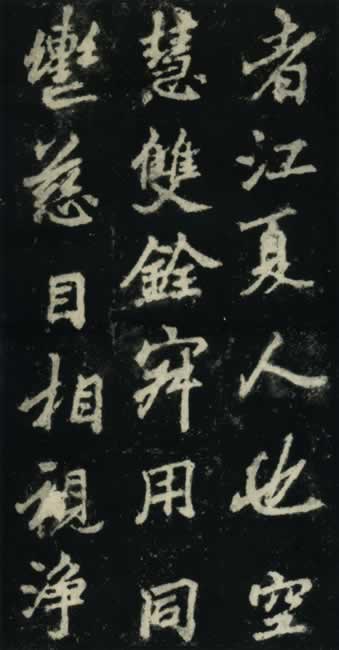 者江夏人也空
慧雙銓寂用同
轡慈目相視淨